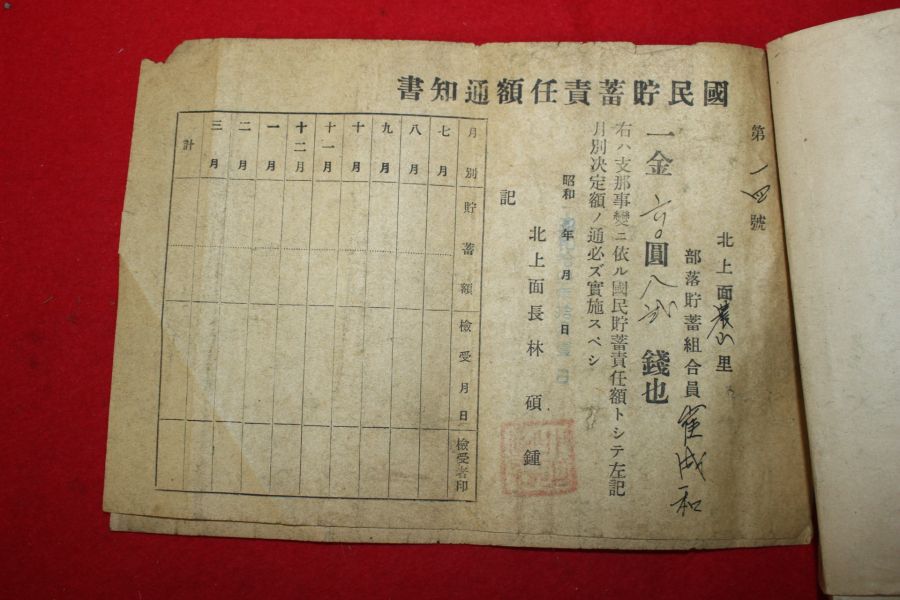 國民貯蓄責任額通知書
第一四號
北上面農山里
部落貯蓄組合員 崔成和
一金 六〇圓八貳錢也
右ハ支那事變ニ依ル國民貯蓄責任額トシテ左記
月別決定額ノ通必ズ實施スベシ
昭和 年 月 日
北上面長林碩鍾
記
月別 貯蓄額 檢受月日 檢受者印
七月
八月
九月
十月
十一月
十二月
一月
二月
三月
計